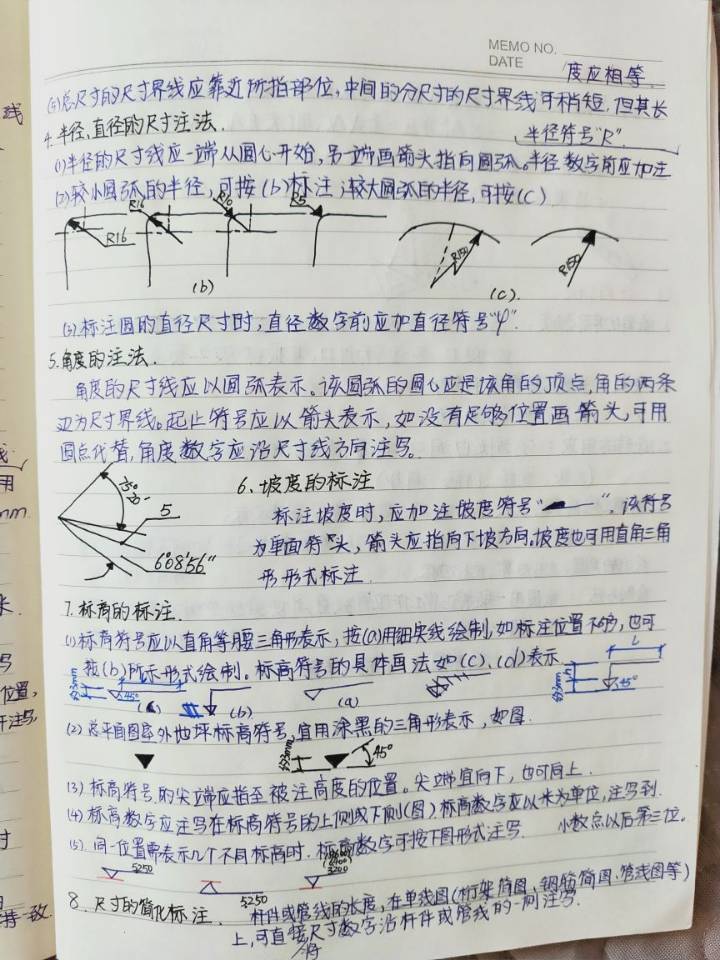 MEMO NO.
DATE
度应相等.
(5)总尺寸的尺寸界线应靠近所指部位,中间的分尺寸的尺寸界线可稍短,但其长
4.半径、直径的尺寸注法.
半径符号"R".
(1)半径的尺寸线应一端从圆心开始,另一端画箭头指向圆弧。半径数字前应加注
(2)较小圆弧的半径,可按(b)标注;较大圆弧的半径,可按(C)
R16 R16 R10 R5
R150 R150
(b) (c).
(3)标注圆的直径尺寸时,直径数字前应加直径符号"φ".
5.角度的注法.
角度的尺寸线应以圆弧表示。该圆弧的圆心应是该角的顶点,角的两条
边为尺寸界线。起止符号应以箭头表示,如没有足够位置画箭头,可用
圆点代替,角度数字应沿尺寸线方向注写。
5
6°08′56″
6.坡度的标注
标注坡度时,应加注坡度符号" ",该符号
为单面符头,箭头应指向下坡方向。坡度也可用直角三角
形形式标注.
7.标高的标注.
(1)标高符号应以直角等腰三角形表示,按(a)用细实线绘制,如标注位置不够,也可
按(b)所示形式绘制。标高符号的具体画法如(C)、(d)表示
L
45°
45°
(b) (a)
(2)总平面图室外地坪标高符号,宜用涂黑的三角形表示,如图.
≈3mm
45°
(3)标高符号的尖端应指至被注高度的位置。尖端宜向下,也可向上.
(4)标高数字应注写在标高符号的上侧或下侧(图)标高数字应以米为单位,注写到
小数点以后第三位。
(5).同一位置需表示几个不同标高时,标高数字可按下图形式注写.
5250 5250 3200
8.尺寸的简化标注.
杆件或管线的长度,在单线图(桁架简图、钢筋简图、管线图等)
上,可直接将尺寸数字沿杆件或管线的一侧注写.
线
用
mm.
位置,
于注写,
时
持一致.